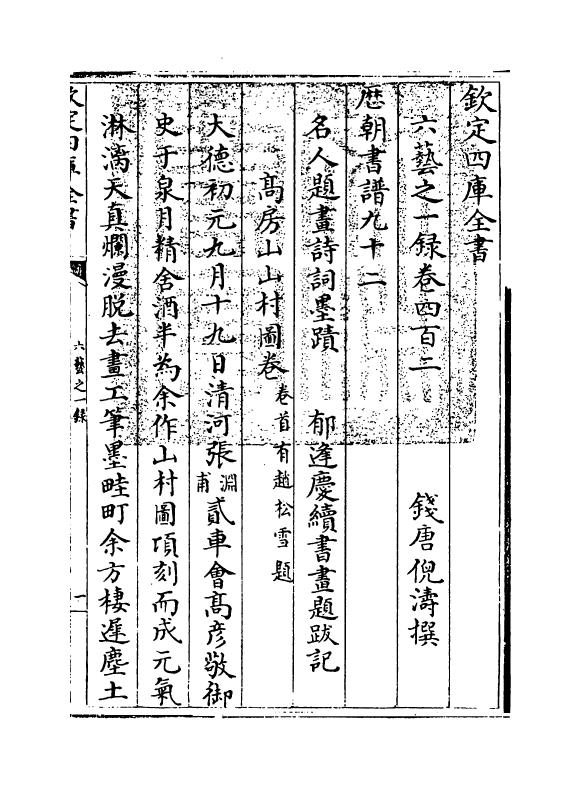 欽定四庫全書
六藝之一録卷四百二
錢唐倪濤撰
歴朝書譜九十二
名人題畫詩詞墨蹟
郁逢慶續書畫題跋記
高房山山村圖卷
卷首有趙松雪題
大德初元九月十九日清河張淵甫貳車會髙彦敬御
史于泉月精舍酒半為余作山村圖頃刻而成元氣
淋漓天真爛漫脱去畫工筆墨畦町余方棲遲塵土
欽定四庫全書
六藝之一録
一